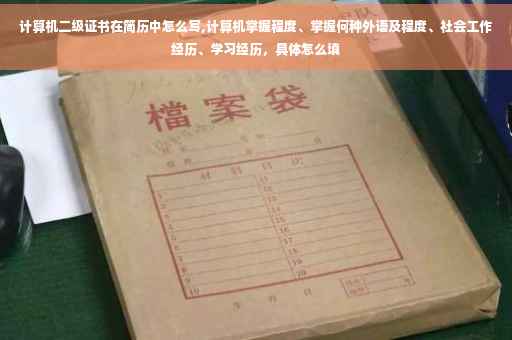 计算机二级证书在简历中怎么写,计算机掌握程度、掌握何种外语及程度、社会工作
经历、学习经历，具体怎么填
檔案袋
材料目次
1 11
2 12
3 13
4 14
5 15
6 16
7 17
8 18
9 19
10 20
年 月 日